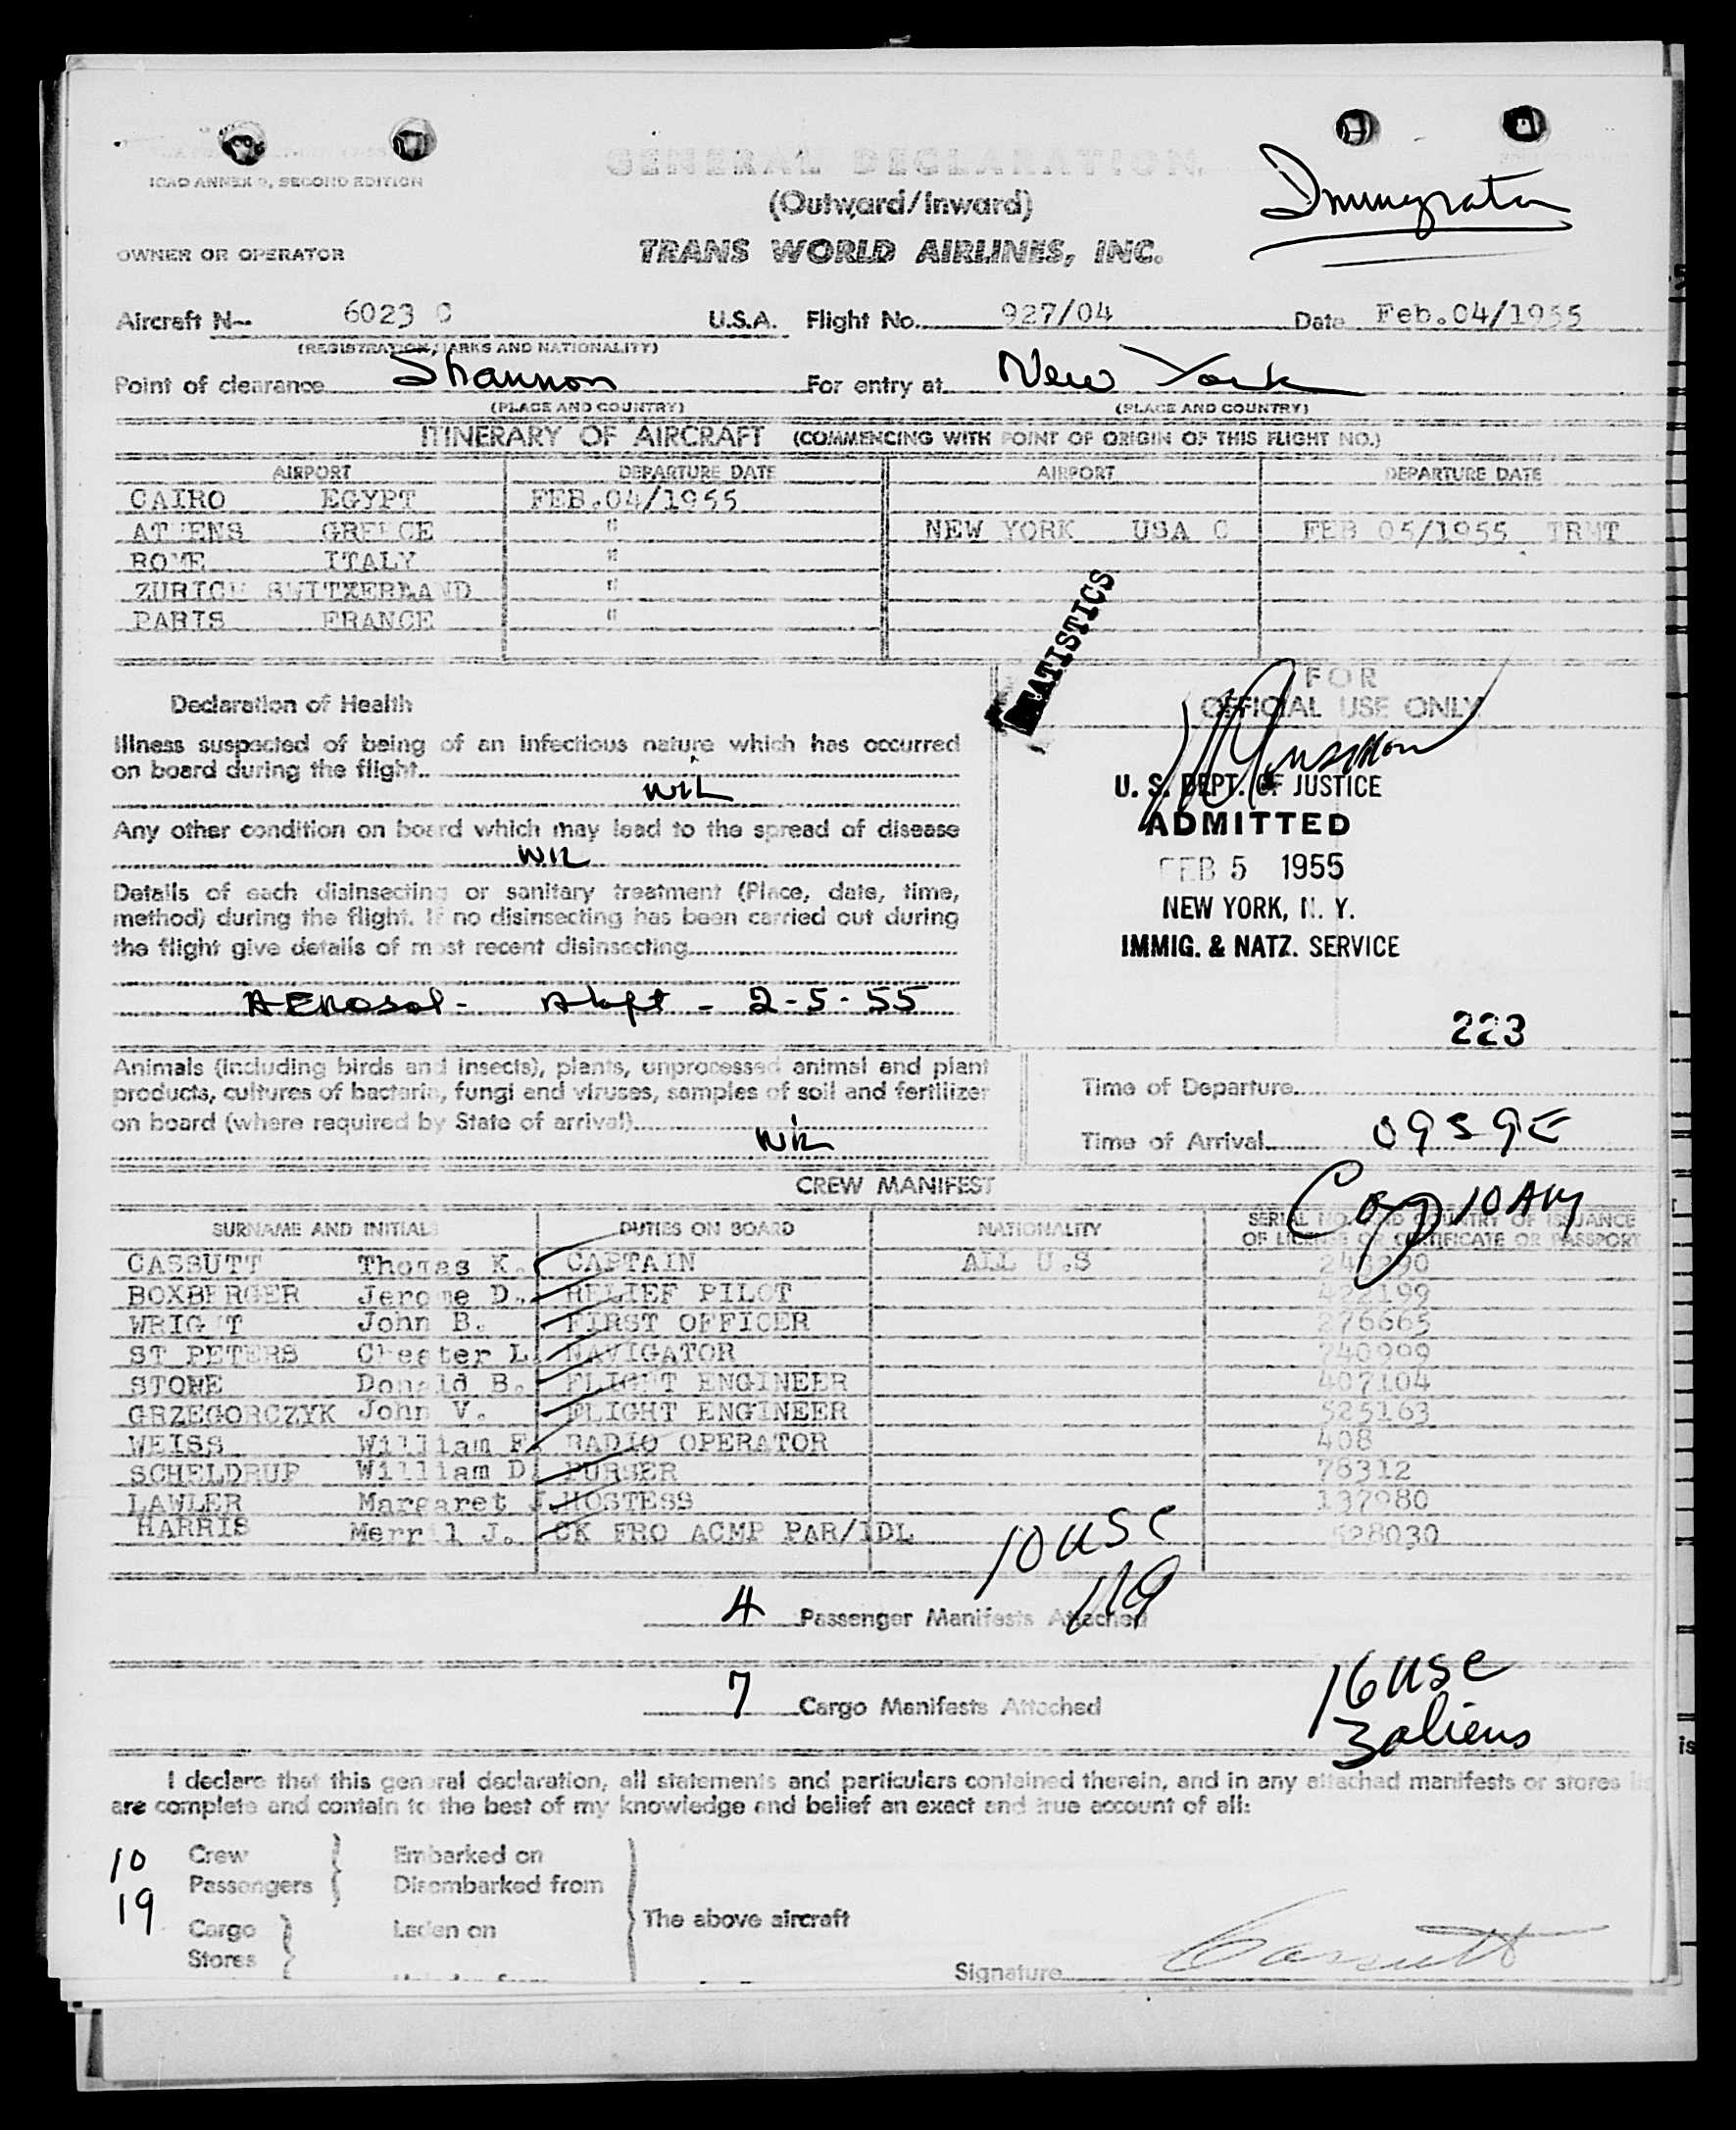 Immigration
ICAO ANNEX 9, SECOND EDITION
GENERAL DECLARATION
(Outward/Inward)
OWNER OR OPERATOR
TRANS WORLD AIRLINES, INC.
Aircraft N— 6023 C U.S.A. Flight No. 927/04 Date Feb.04/1955
(REGISTRATION, MARKS AND NATIONALITY)
Point of clearance Shannon For entry at New York
(PLACE AND COUNTRY) (PLACE AND COUNTRY)
ITINERARY OF AIRCRAFT (COMMENCING WITH POINT OF ORIGIN OF THIS FLIGHT NO.)
AIRPORT DEPARTURE DATE AIRPORT DEPARTURE DATE
CAIRO EGYPT FEB.04/1955
ATHENS GREECE " NEW YORK USA C FEB 05/1955 TRMT
ROME ITALY "
ZURICH SWITZERLAND "
PARIS FRANCE "
STATISTICS
FOR
OFFICIAL USE ONLY
Declaration of Health
Illness suspected of being of an infectious nature which has occurred
on board during the flight
NIL
Any other condition on board which may lead to the spread of disease
NIL
Details of each disinsecting or sanitary treatment (Place, date, time,
method) during the flight. If no disinsecting has been carried out during
the flight give details of most recent disinsecting
Aerosol - - 2-5-55
U. S. DEPT. OF JUSTICE
ADMITTED
FEB 5 1955
NEW YORK, N. Y.
IMMIG. & NATZ. SERVICE
223
Animals (including birds and insects), plants, unprocessed animal and plant
products, cultures of bacteria, fungi and viruses, samples of soil and fertilizer
on board (where required by State of arrival)
NIL
Time of Departure
Time of Arrival 0959E
10 AM
CREW MANIFEST
SURNAME AND INITIALS DUTIES ON BOARD NATIONALITY SERIAL NO. AND COUNTRY OF ISSUANCE
OF LICENSE OR CERTIFICATE OR PASSPORT
CASSUTT Thomas K. CAPTAIN ALL U.S
BOXBERGER Jerome D. RELIEF PILOT 422199
WRIGHT John B. FIRST OFFICER 276665
ST PETERS Chester L. NAVIGATOR 240999
STONE Donald B. FLIGHT ENGINEER 407104
GRZEGORCZYK John V. FLIGHT ENGINEER 525163
WEISS William F. RADIO OPERATOR 408
SCHELDRUP William D. PURSER 78312
LAWLER Margaret J. HOSTESS 137980
HARRIS Merrill J. CK FRO ACMP PAR/IDL 528030
10 USC
119
4 Passenger Manifests Attached
16 USC
3 aliens
7 Cargo Manifests Attached
I declare that this general declaration, all statements and particulars contained therein, and in any attached manifests or stores
are complete and contain to the best of my knowledge and belief an exact and true account of all:
10 Crew Embarked on
19 Passengers Disembarked from
Cargo Laden on The above aircraft
Stores
Signature Cassutt